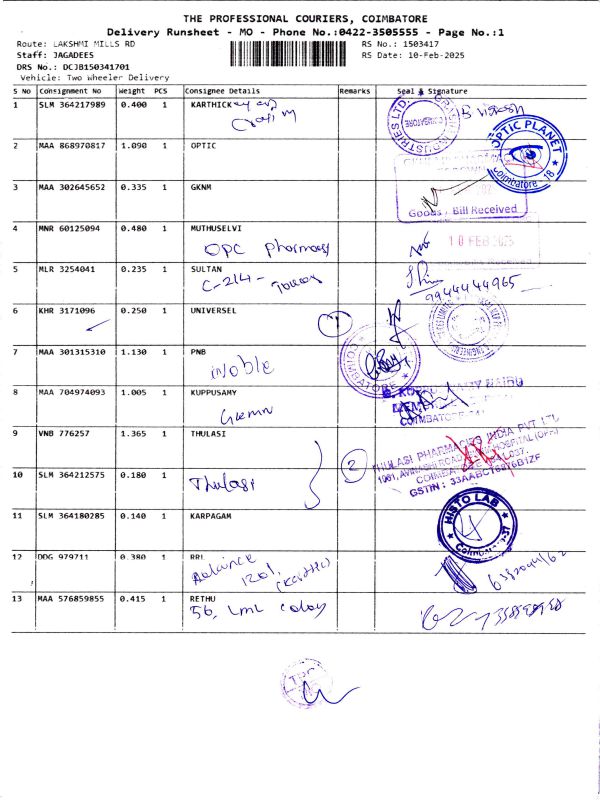 THE PROFESSIONAL COURIERS, COIMBATORE
Delivery Runsheet - MO - Phone No.:0422-3505555 - Page No.:1
Route: LAKSHMI MILLS RD
RS No.: 1503417
Staff: JAGADEES
RS Date: 10-Feb-2025
DRS No.: DCJB150341701
Vehicle: Two Wheeler Delivery
S No Consignment No Weight PCS Consignee Details Remarks Seal & Signature
1 SLM 364217989 0.400 1 KARTHICK
INDUSTRIES LTD.
COIMBATORE
2 MAA 868970817 1.090 1 OPTIC
OPTIC PLANET
Coimbatore - 18
3 MAA 302645652 0.335 1 GKNM
Goods / Bill Received
4 MNR 60125094 0.480 1 MUTHUSELVI
OPC pharmacy
10 FEB 2025
5 MLR 3254041 0.235 1 SULTAN
C-214-
9944444965
6 KHR 3171096 0.250 1 UNIVERSEL
1
7 MAA 301315310 1.130 1 PNB
Noble
COIMBATORE
8 MAA 704974093 1.005 1 KUPPUSAMY
COIMBATORE
9 VNB 776257 1.365 1 THULASI
2
THULASI PHARMACIES INDIA PVT LTD
COIMBATORE
GSTIN : 33AABCT6876B1ZF
10 SLM 364212575 0.180 1
Thulasi
11 SLM 364180285 0.140 1 KARPAGAM
HISTO LAB
Coimbatore-37
12 DDG 979711 0.380 1 RRL
Reliance
13 MAA 576859855 0.415 1 RETHU
56, LML colony